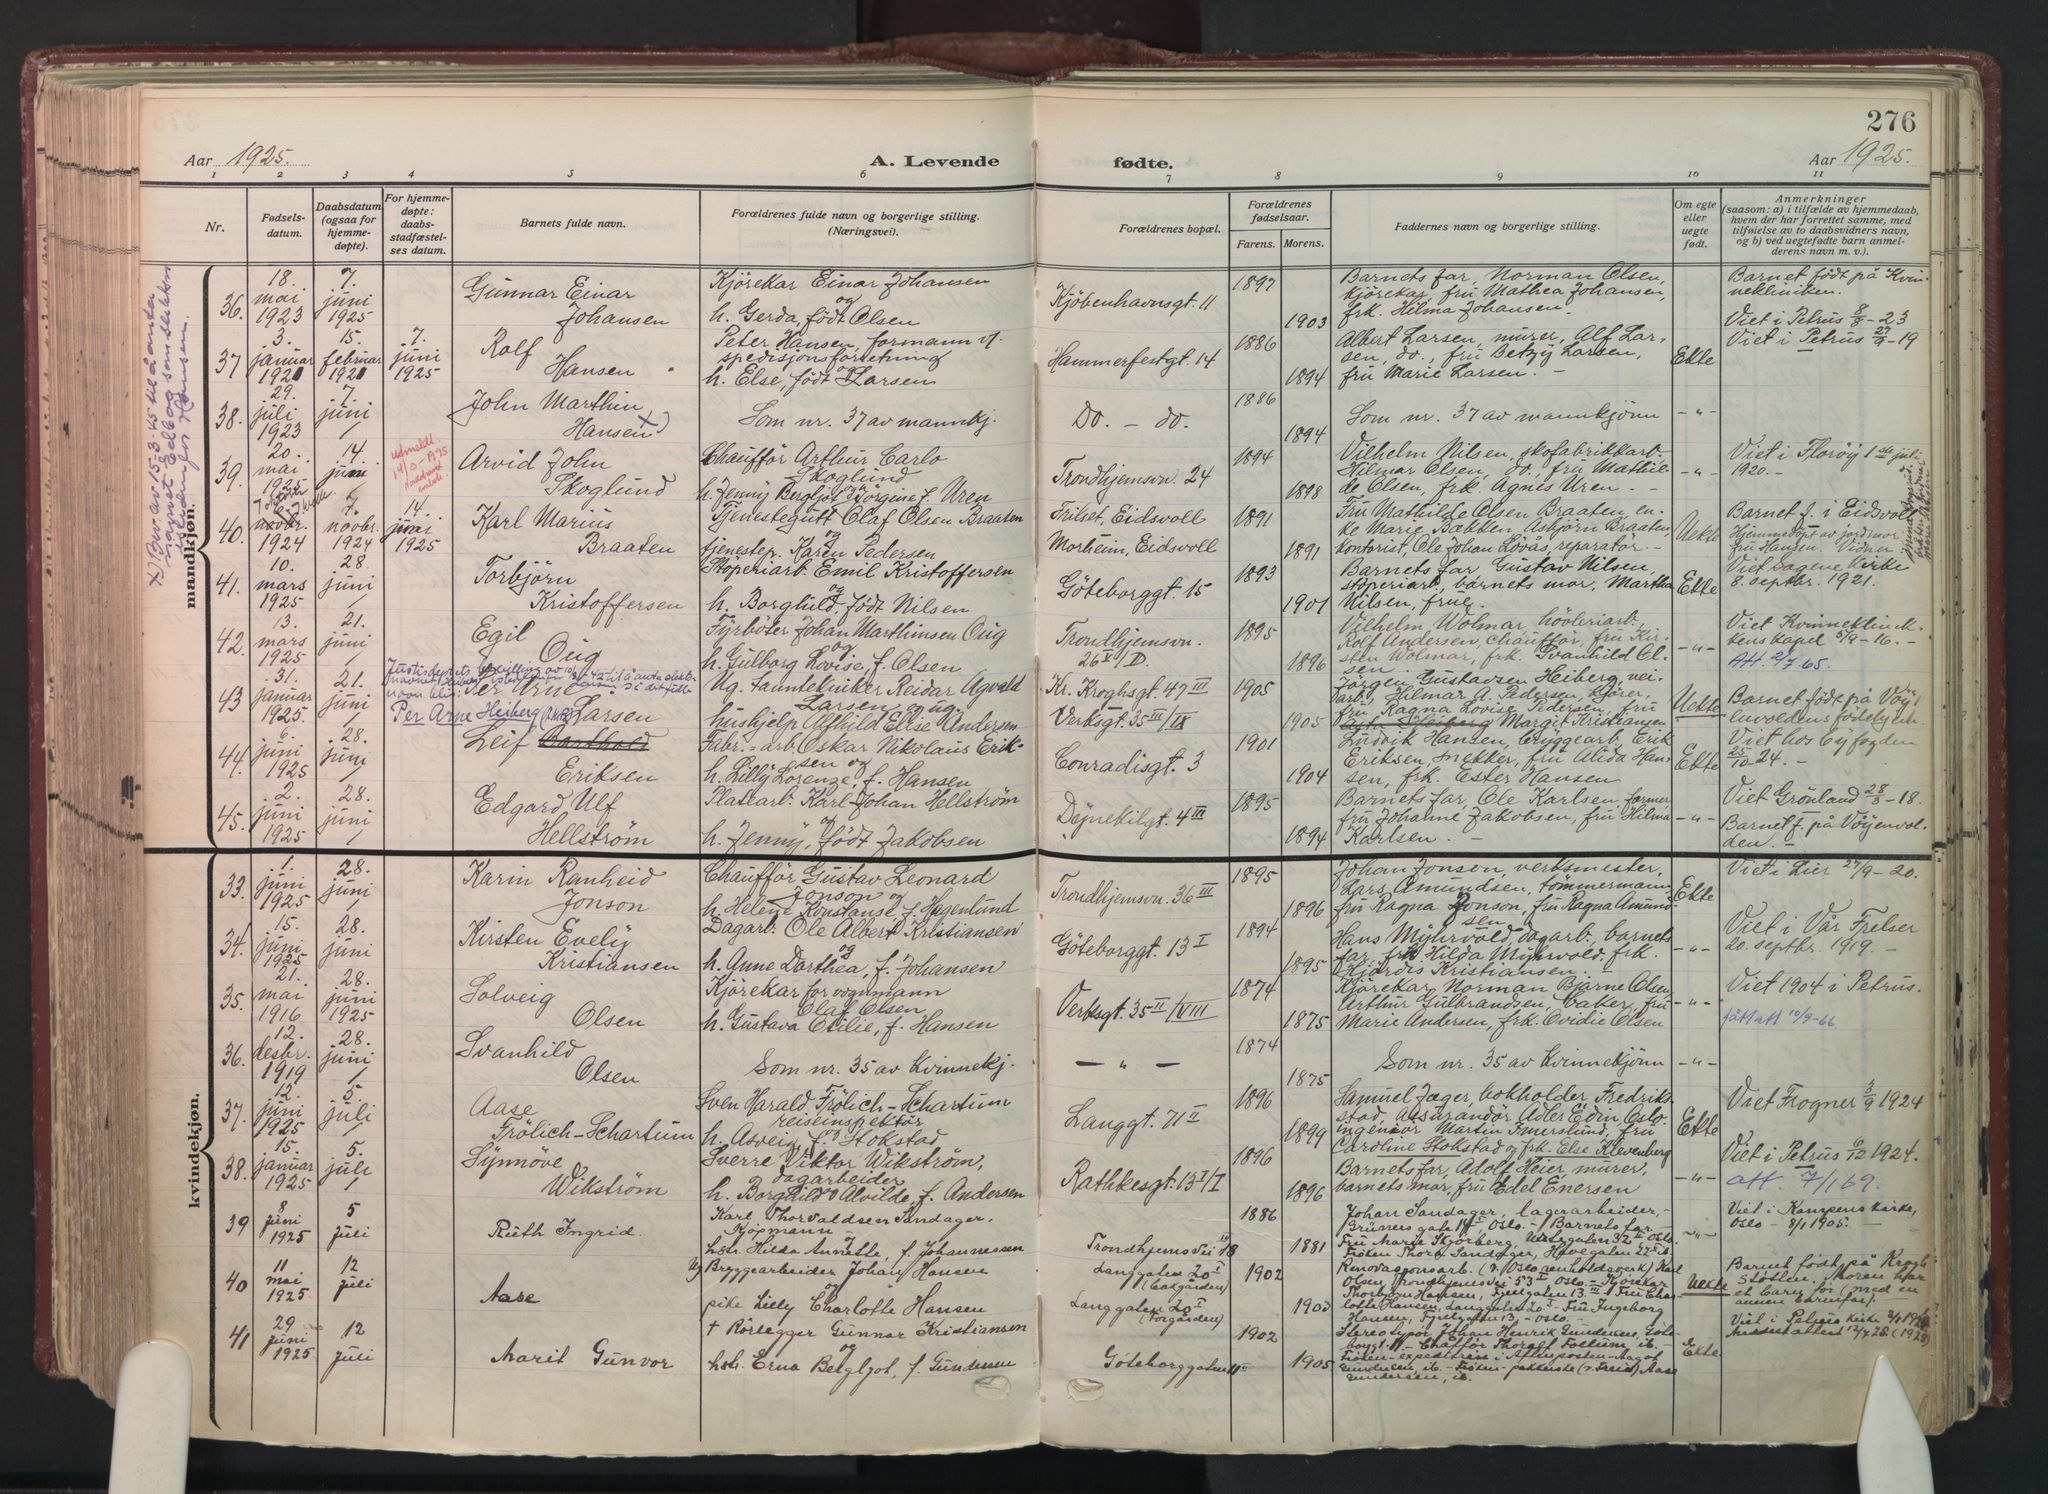 276
Aar 1925.
A. Levende fødte.
Aar 1925.
1 2 3 4 5 6 7 8 9 10 11
Nr.
Fødsels-
datum.
Daabsdatum
(ogsaa for
hjemme-
døpte).
For hjemme-
døpte:
daabs-
stadfæstel-
ses datum.
Barnets fulde navn.
Forældrenes fulde navn og borgerlige stilling.
(Næringsvei).
Forældrenes bopæl.
Forældrenes
fødselsaar.
Farens. Morens.
Faddernes navn og borgerlige stilling.
Om egte
eller
uegte
født.
Anmerkninger
(saasom: a) i tilfælde av hjemmedaab,
hvem der har forrettet samme, med
tilføielse av to daabsvidners navn,
og b) ved uegtefødt barn anmel-
derens navn m. v.).
mandkjøn.
36.
18.
mai
1923
7.
juni
1925
Gunnar Einar
Johansen
Kjørekar Einar Johansen
og
h. Gerda, født Olsen
Kjøbenhavnsgt. 11
1897
1903
Barnets far, Norman Olsen,
kjørekar, fru Mathea Johansen,
frk. Hilma Johansen.
Barnet født på Kvin-
nekliniken.
Viet i Petrus 8/8 - 23
37
3.
januar
1921
15.
februar
1921
7.
juni
1925
Rolf
Hansen
Peter Hansen, formann v.
spedisjonsforretning
og
h. Else, født Larsen
Hammerfestgt. 14
1886
1894
Albert Larsen, murer, Alf Lar-
sen, do., fru Betzy Larsen,
fru Marie Larsen. -
Ekte
Viet i Petrus 27/9 - 19
38.
29.
juli
1923
7.
juni
John Marthin
Hansen x)
Som nr. 37 av mannkj.
Do. - do.
1886
1894
Som nr. 37 av mannkjønn
- " -
39.
20.
mai
1925
14.
juni
Arvid John
Skoglund
Chaufför Arthur Carlo
Skoglund
h. Jenny Bergljot Jörgine f. Uren
Trondhjemsvn. 24
1894
1898
Vilhelm Nilsen, skofabrikkarb.
Hilmar Olsen, do., fru Mathil-
de Olsen, frk. Agnes Uren. -
- " -
Viet i Florøy 1ste juli
1920. -
40.
1924
7.
novbr.
1924
14.
juni
1925
Karl Marius
Braaten
Tjenestegutt Olaf Olsen Braaten
og
tjenestep. Karen Pedersen
Frilset, Eidsvoll
Morheim, Eidsvoll
1891
1891
Fru Mathilde Olsen Braaten, en-
ke Marie Bækken, Asbjørn Braaten,
kontorist, Ole Johan Lövås, reparatør. -
Uekte
Barnet f. i Eidsvoll
Hjemmedöpt av jordmor
fru Hansen. Vidner
41.
10.
mars
1925
28.
juni
Torbjörn
Kristoffersen
Støperiarb. Emil Kristoffersen
og
h. Borghild, født Nilsen
Göteborggt. 15
1893
1901
Barnets far, Gustav Nilsen,
støperiarb., barnets mor, Martha
Nilsen, frue.
Ekte
Viet Sagene Kirke
8. septbr. 1921.
42.
13.
mars
1925
21.
juni
Egil
Oug
Fyrbøter Johan Marthinsen Oug
og
h. Gulborg Lovise, f. Olsen
Trondhjemsvn.
26 I/D.
1895
1896
Vilhelm Wolmar, høvleriarb.
Rolf Andersen, chauffør, fru Kir-
sten Wolmar, frk. Svanhild Ol-
sen
- " -
Viet Kvinneklinik-
kens kapel 5/9 - 16. -
Att. 2/7. 65.
43
31.
januar
1925.
21.
juni
Per Arne
Larsen
Per Arne Heiberg
Ug. tanntekniker Reidar Agvald
Larsen og ug.
hushjelp Alfhild Elise Andersen
Kr. Kroghsgt. 47 III
Verksgt. 35 III/IX
1905
1905
Jørgen Gustavsen Heiberg, vei-
arb., Hilmar A. Pedersen, kjører,
fru Ragna Lovise Pedersen, fru
Margit Kristiansen
Uekte
Barnet født på Vøy-
envoldens fødehjem
44.
6.
juni
1925
28.
juni
Leif Barthold
Eriksen
Fabr.-arb. Oskar Nikolaus Erik-
sen og
h. Lilly Lorenze, f. Hansen
Conradisgt. 3
1901
1904
Ludvik Hansen, bryggearb., Erik
Eriksen, snekker, fru Alida Han-
sen, frk. Ester Hansen
Ekte
Viet hos Byfogden
25/10 24. -
45.
2.
juni
1925
28.
juni
Edgard Ulf
Hellström
Platearb. Karl Johan Hellström
og
h. Jenny, født Jakobsen
Dynekilgt. 4 III
1895
1894
Barnets far, Ole Karlsen, former,
fru Johanne Jakobsen, fru Hilma
Karlsen. -
- " -
Viet Grønland 28/3 - 18.
Barnet f. på Vøyenvol-
den. -
kvindekjøn.
33.
1.
juni
1925
28.
juni
Karin Ranheid
Jonson
Chaufför Gustav Leonard
Jonson og
h. Helene Konstanse, f. Hagenlund
Trondhjemsvn. 36 III
1895
1896
Johan Jonson, verksmester,
Lars Amundsen, tømmermann
fru Ragna Jonson, fru Ragna Amund-
sen
Ekte
Viet i Lier 27/9 - 20.
34.
15.
juni
1925
28.
juni
Kirsten Evely
Kristiansen
Dagarb. Ole Albert Kristiansen
og
h. Anne Dorthea, f. Johansen
Göteborggt. 13 I
1894
1895
Hans Myhrvold, dagarb., barnets
far, frk Hilda Myhrvold, frk.
Hjördis Kristiansen. -
- " -
Viet i Vår Frelser
20. septbr. 1919. -
35.
21.
mai
1916
28.
juni
1925
Solveig
Olsen
Kjørekar forvognmann
Olaf Olsen
h. Gustava Otilie, f. Hansen
Verksgt. 35 II/VIII
1874
1875
Kjørekar Norman Bjarne Olsen,
Arthur Gulbrandsen, baker, fru
Marie Andersen, frk. Ovidie Olsen
- " -
Viet 1904 i Petrus.
fått att 10/9-66
36.
12.
desbr.
1919
28.
juni
Svanhild
Olsen
Som nr. 35 av Kvinnekj.
- " -
1874
1875
Som nr. 35 av Kvinnekjønn
- " -
37.
12.
juni
1925
5.
juli
Aase
Frölich-Schartum
Sven Harald Frölich-Schartum
reiseinspektör
h. Asveig, f. Stokstad
Langgt. 71 II
1896
1899
Samuel Jæger, bokholder Fredrik-
stad, assurandør Adler Edin Oslo
ingeniør Martin Imerslund, fru
Caroline Stokstad og frk. Else Klevenberg
Ekte
Viet Frogner 3/9 1924
38.
15.
januar
1925
5.
juli
Synnöve
Wikström
Sverre Viktor Wikström,
dagarbeider
h. Borghild Alvilde, f. Andersen
Rathkesgt. 13 I/I
1896
1896
Barnets far, Adolf Heier murer,
barnets mor, fru Edel Enersen
- " -
Viet i Petrus 6/12 1924.
att. 7/1 69.
39
8
juni
1925
5
juli
Ruth Ingrid.
Karl Thorvaldsen Sandager,
Kjøpmann
hstr. Hilda Annette, f. Johannessen
Trondhjemsvei 18
1886
1881
Johan Sandager, lagerarbeider, -
Grünersgate 14 II Oslo. - Barnets far. -
Fru Marie Skjörberg, Oslo. -
Fröken Thora Sandager, Havegaten
- " -
Viet i Kampens kirke,
Oslo - 8/1 1905. -
40
11
mai
1925
12
juli
Aase
Ug Bryggearbeider Johan Hansen
pike Lilly Charlotte Hansen
Langgaten 20 I
(Bakgården)
Langgaten 20 I
(Forgården)
1902
1903
Renovasjonsarb. (v. Oslo renholdsverk) Karl
Olsen, Trondhjemsvei 53 I Oslo. - Kjörekar
Thorbjørn Hansen, Fjellgaten 13 III / Fru Char-
lotte Hansen, Langgaten 20 I - Fru Ingeborg
Hansen, Fjellgaten 13 - Oslo. -
Uekte
Barnet født på Krogh-
støtten. Moren har
et barn før (med en
annen barnefar).
41
29
juni
1925
12
juli
Marit Gunvor
† Rörlegger Gunnar Kristiansen
og
hstr. Erna Bergljot, f. Gundersen
Göteborggaten 11
1902
1905
Stereotypör Johan Henrik Gundersen, Göte-
borggt. 11 - Chaufför Thoralf Follum ib. -
Ekte
Viet i Petrus Kirke